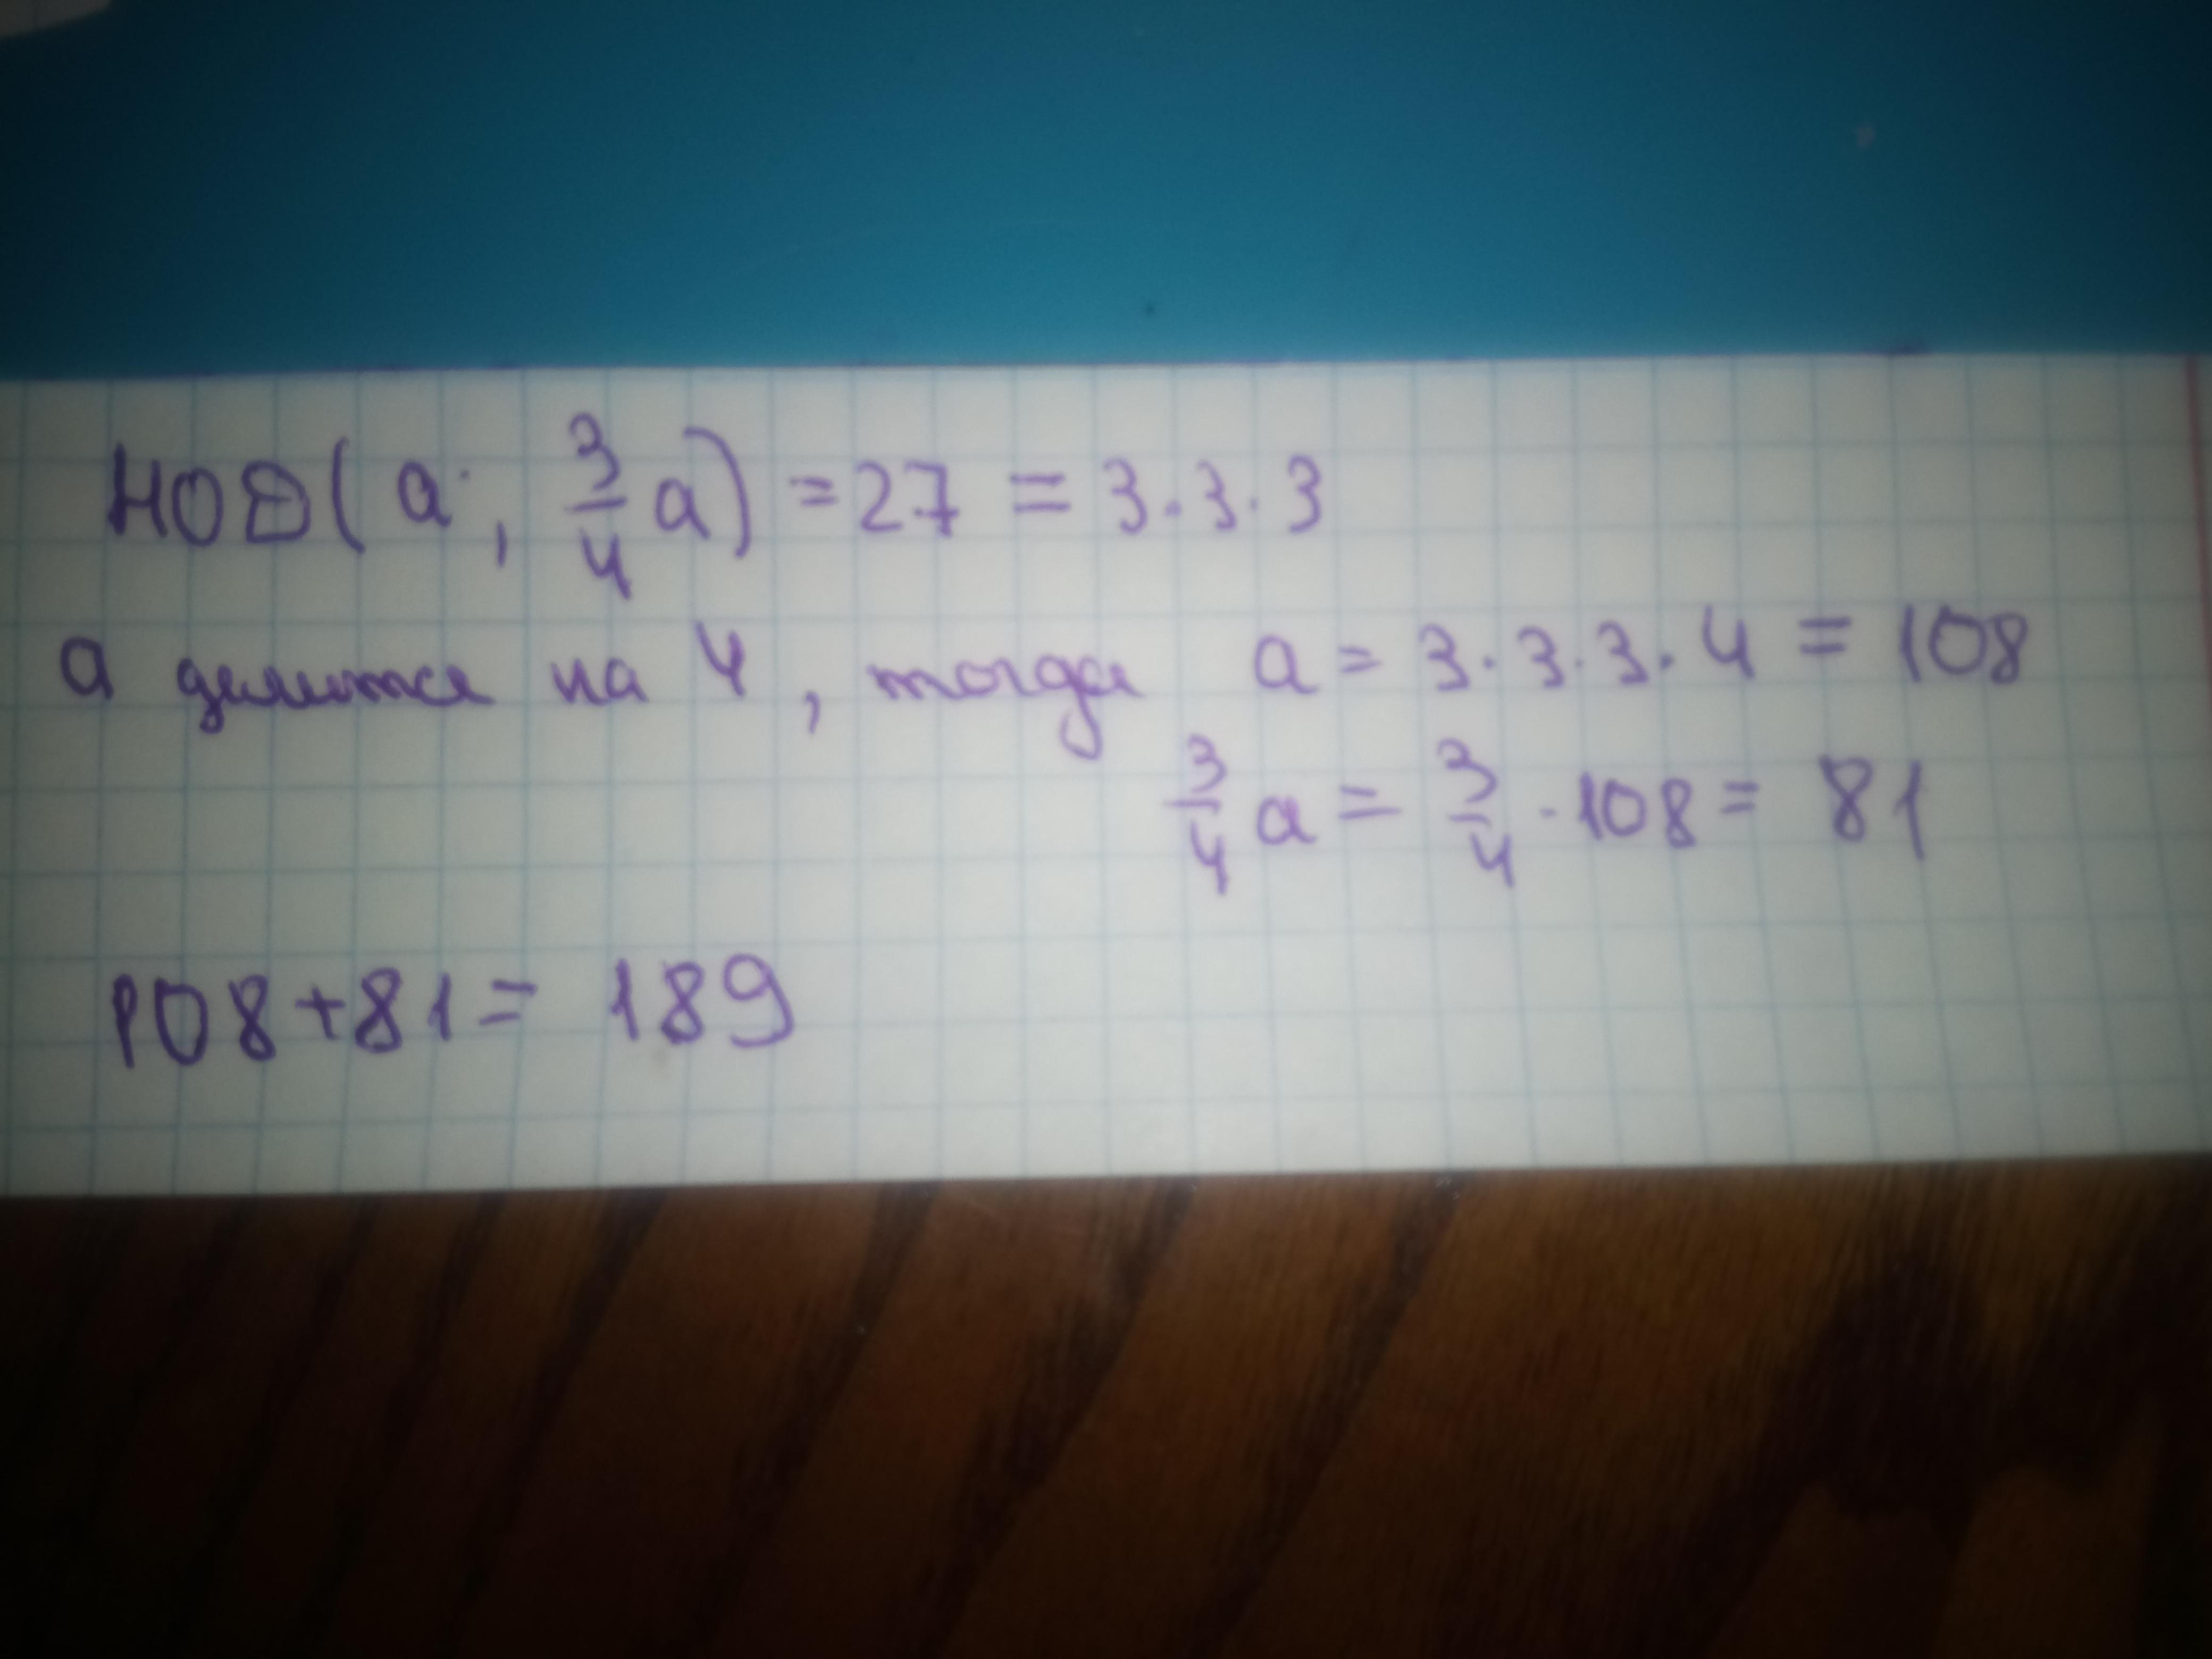 НОД(a, 3/4 a) = 27 = 3·3·3
a делится на 4, тогда a = 3·3·3·4 = 108
3/4 a = 3/4 · 108 = 81
108+81= 189